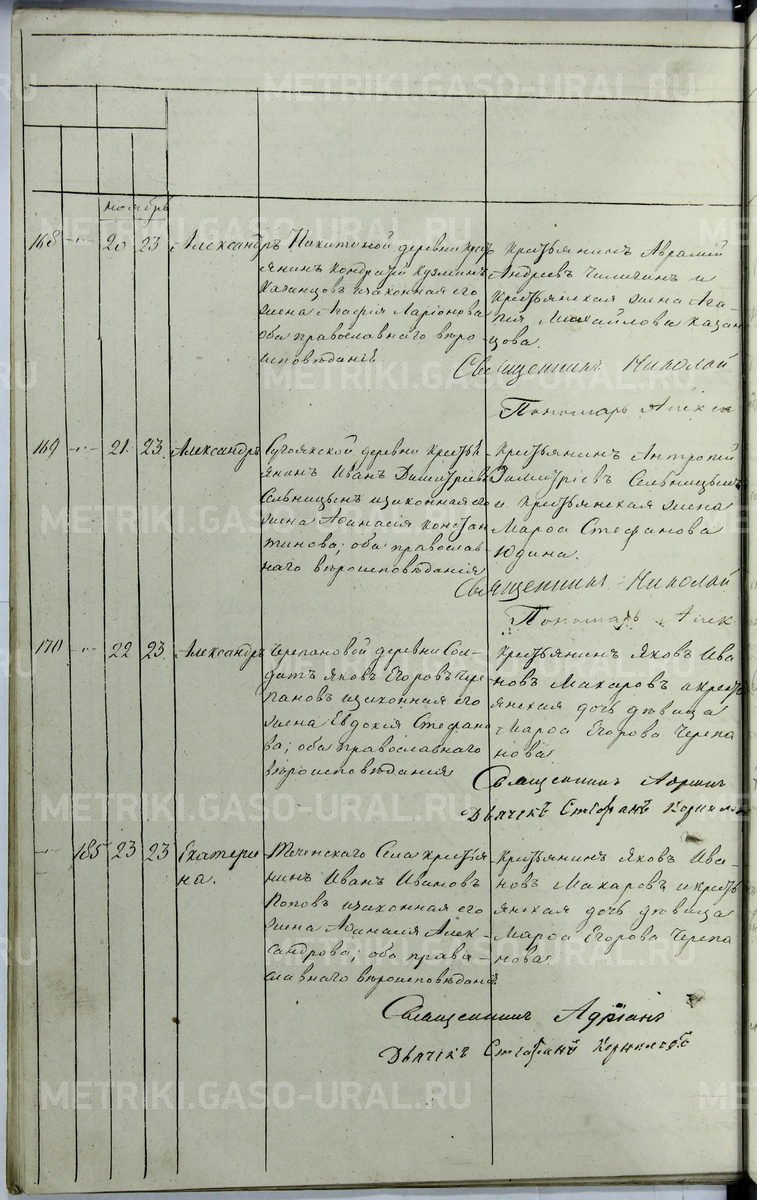 ноябрь
168 20 23 Александръ Никитиной деревни крестъ
янинъ Кондратiй Кузминъ
Казанцовъ изаконная его
жена Агафiя Ларiонова
оба православнаго веро
исповеданiя
крестьянинъ Аврамiй
Андреевъ Чиличинъ и
крестьянская жена Ага
пiя Михайлова Казан
цова.
Священникъ Николай
Пономарь Алекса
169 21. 23. Александръ Сугоякской деревни крестья
янинъ Иванъ Димитрiевъ
Сельницынъ изаконная его
жена Афанасiя Констан
тинова; оба православ-
наго вероисповеданiя
крестьянинъ Антропiй
Димитрiевъ Сельницынъ
и крестьянская жена
Марфа Стефанова
Юдина.
Священникъ Николай
Пономарь Алек
170 22 23 Александръ Черепановой деревни Сол-
датъ Яковъ Егоровъ Чере
пановъ изаконная его
жена Евдокiя Стефано
ва; оба православнаго
вероисповеданiя
крестьянинъ Яковъ Ива
новъ Макаровъ и кресть
янская дочь девица
Марфа Егорова Черепа
нова
Священникъ Адрiан
Дьячекъ Стефанъ Корнило
185 23 23 Екатери
на.
Теченскаго Села крестья
нинъ Иванъ Ивановъ
Поповъ изаконная его
жена Афанасiя Алек-
сандрова; оба право
славнаго вероисповеданiя
крестьянинъ Яковъ Ива-
новъ Макаровъ и кресть
янская дочь девица
Марфа Егорова Черепа
нова.
Священникъ Адрiанъ
Дьячекъ Стефанъ Корниловъ
METRIKI.GASO-URAL.RU